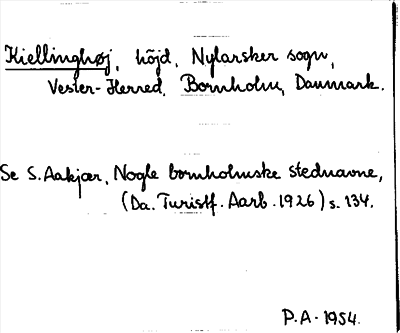 Kiellinghøj, höjd, Nylarsker sogn,
Vester-Herred, Bornholm, Danmark.
Se S. Aakjær, Nogle bornholmske stednavne,
(Da. Turistf. Aarb. 1926) s. 134.
P.A. 1954.